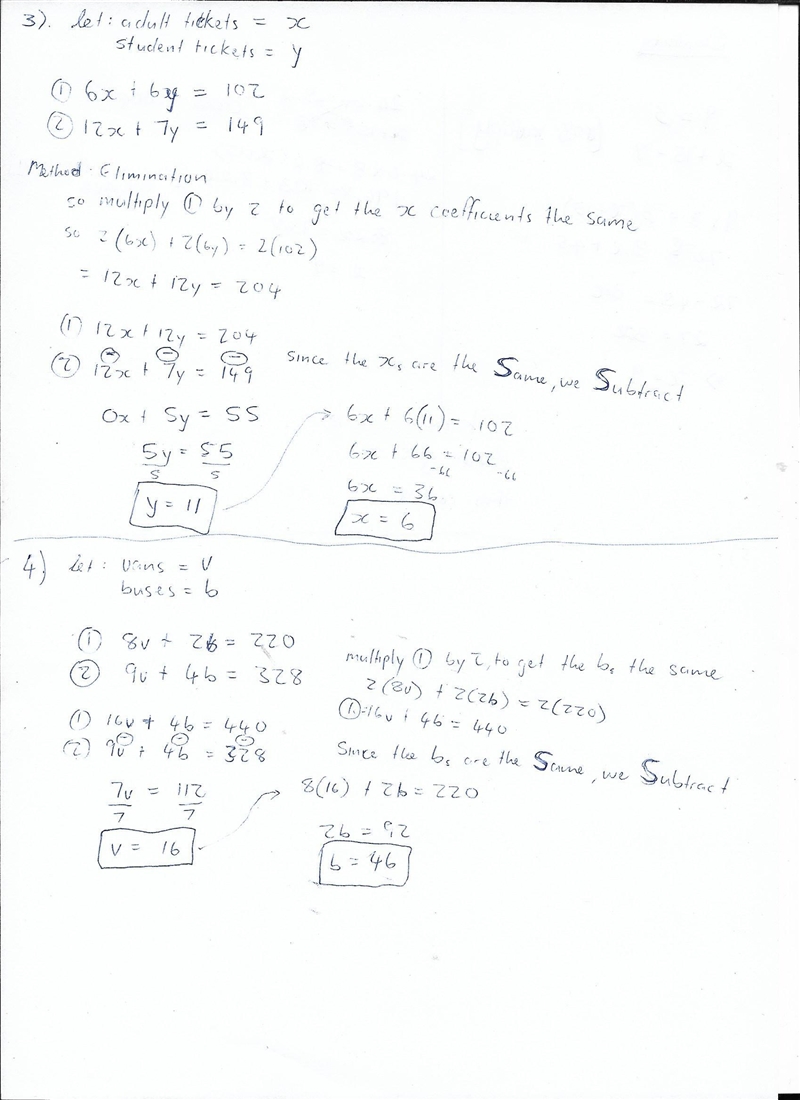 3). Let: adult tickets = x
student tickets = y
① 6x + 6y = 102
② 12x + 7y = 149
Method: Elimination
so multiply ① by 2 to get the x coefficients the same
so 2(6x) + 2(6y) = 2(102)
= 12x + 12y = 204
① 12x + 12y = 204
② 12x + 7y = 149
⊖ ⊖ ⊖
Since the xs are the Same, we Subtract
0x + 5y = 55
5y = 55
5 5
y = 11
6x + 6(11) = 102
6x + 66 = 102
-66 -66
6x = 36
x = 6
4) Let: vans = v
buses = b
① 8v + 2b = 220
② 9v + 4b = 328
multiply ① by 2, to get the bs the same
2(8v) + 2(2b) = 2(220)
①=16v + 4b = 440
① 16v + 4b = 440
② 9v + 4b = 328
⊖ ⊖ ⊖
Since the bs are the Same, we Subtract
7v = 112
7 7
v = 16
8(16) + 2b = 220
2b = 92
b = 46